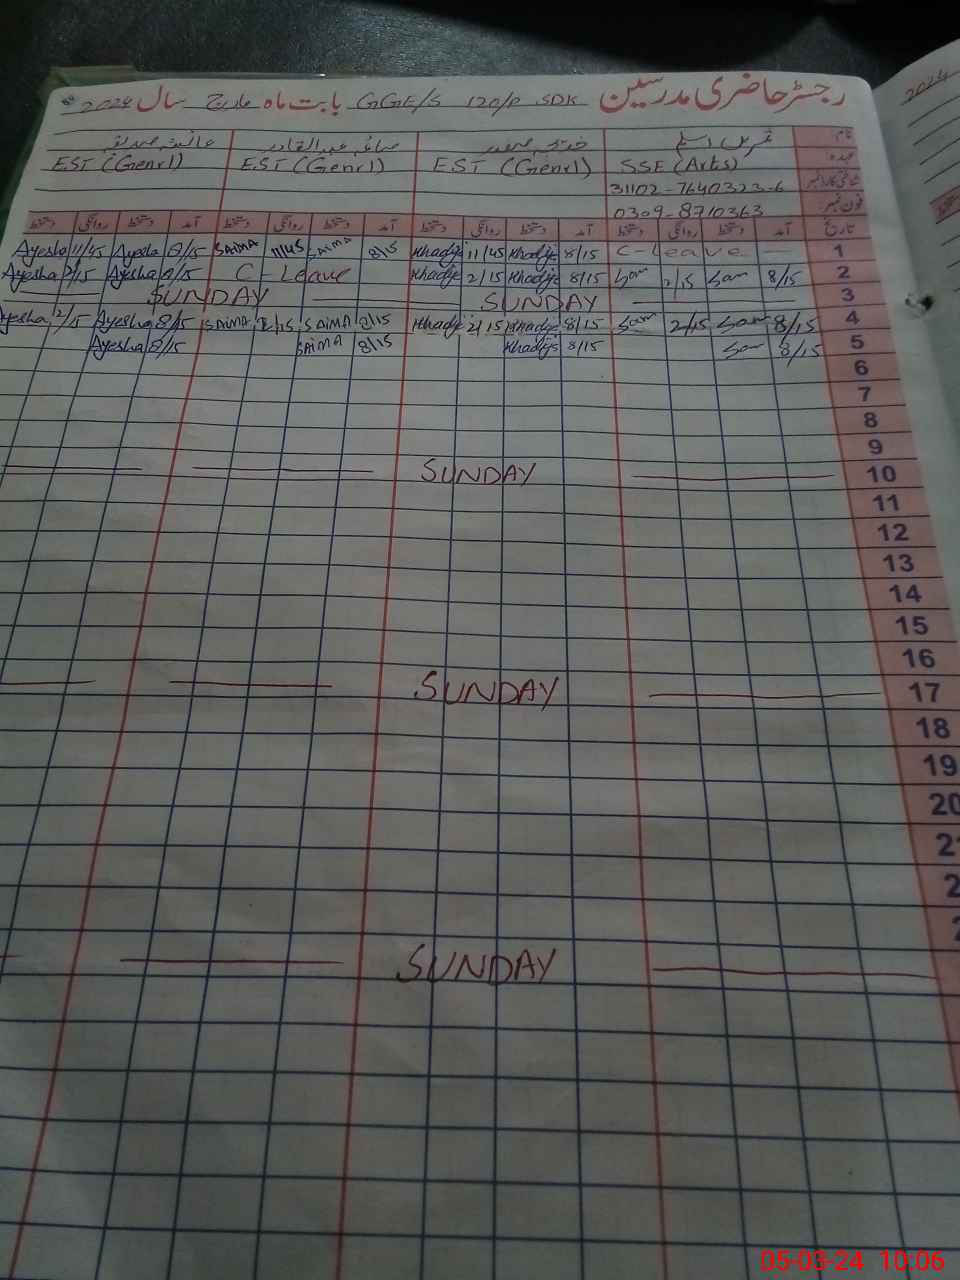 رجسٹر حاضری مدرسین GGE/S 120/P SDK بابت ماہ مارچ سال 2024
نام ثمرین اسلم خدیجہ صفدر صائمہ عبدالقادر عائشہ صدیقہ
عہدہ SSE (Arts) EST (Genrl) EST (Genrl) EST (Genrl)
شناختی کارڈ نمبر 31102-7640323-6
فون نمبر 0309-8710363
تاریخ آمد دستخط روانگی دستخط آمد دستخط روانگی دستخط آمد دستخط روانگی دستخط آمد دستخط روانگی دستخط
1 C-Leave 8/15 Khadije 11/45 Khadije 8/15 SAIMA 11/45 SAIMA 8/15 Ayesha 11/45 Ayesha
2 8/15 Sam 2/15 Sam 8/15 Khadije 2/15 Khadije C-Leave 8/15 Ayesha 2/15 Ayesha
3 SUNDAY SUNDAY
4 8/15 Sam 2/15 Sam 8/15 Khadije 2/15 Khadije 8/15 SAIMA 2/15 SAIMA 8/15 Ayesha 2/15 Ayesha
5 8/15 Sam 8/15 Khadije 8/15 SAIMA 8/15 Ayesha
6
7
8
9
10 SUNDAY
11
12
13
14
15
16
17 SUNDAY
18
19
20
SUNDAY
2024
05-03-24 10:06